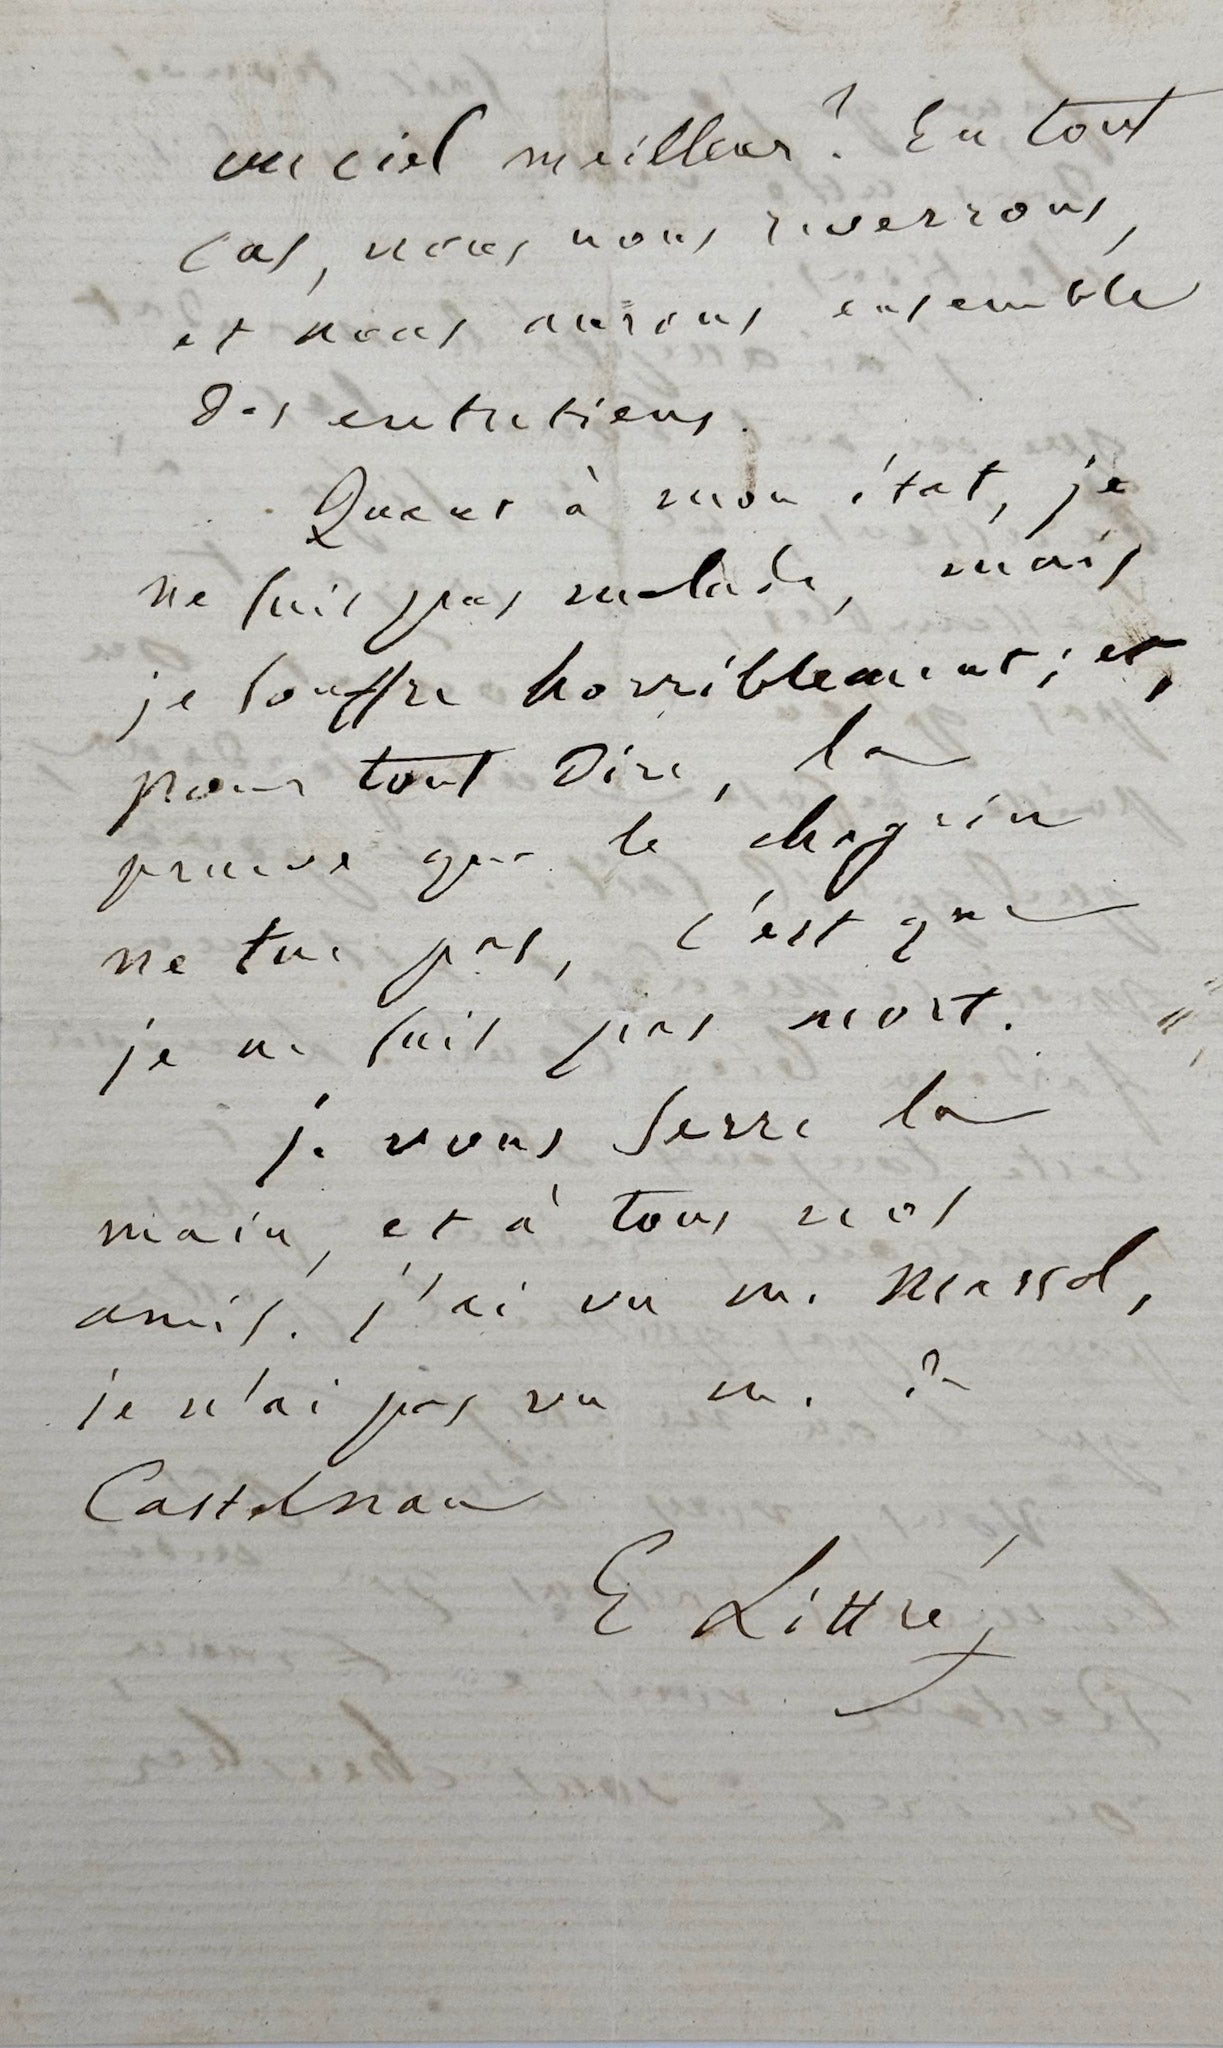 un ciel meilleur ? En tout
cas, nous nous reverrons,
et nous aurons ensemble
des entretiens.
Quant à mon état, je
ne suis pas malade, mais
je souffre horriblement ; et,
pour tout dire, la
preuve que le chagrin
ne tue pas, c'est que
je ne suis pas mort.
je vous serre la
main, et à tous nos
amis. j'ai vu m. Massol,
je n'ai pas vu m. de
Castelnau
E Littré